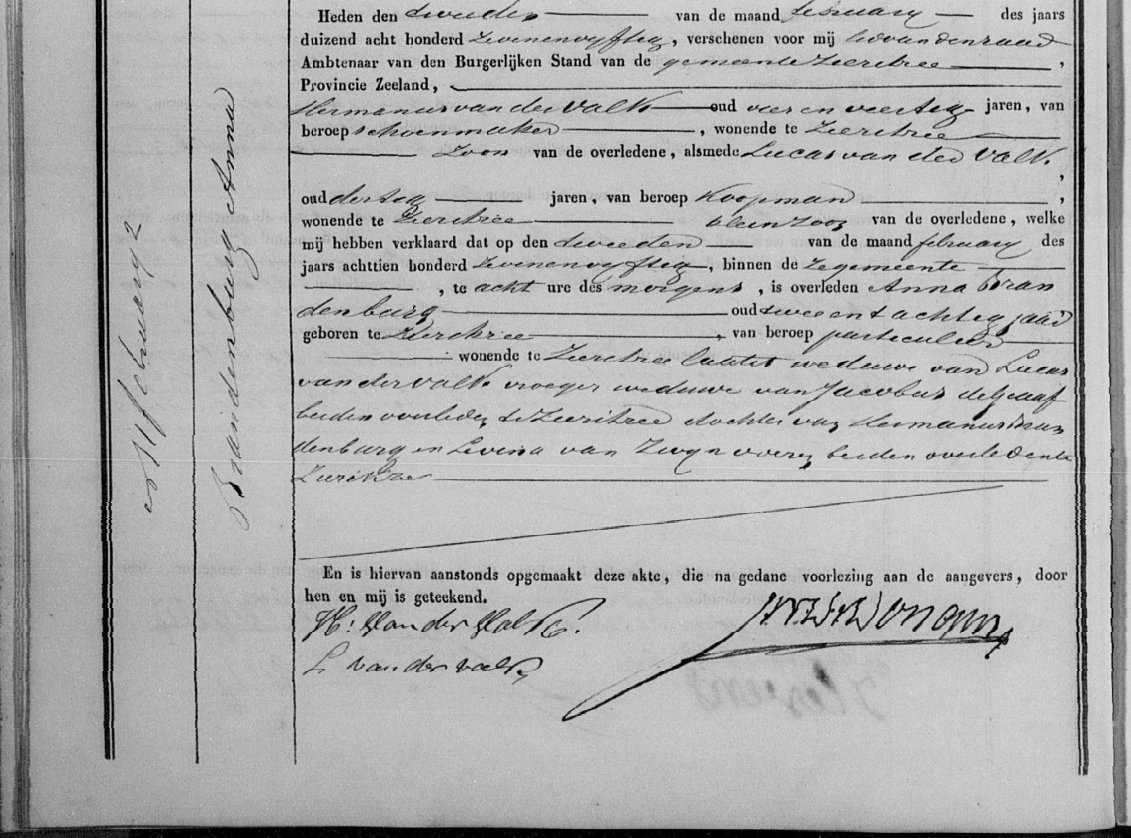 Heden den tweeden van de maand february des jaars
duizend acht honderd Zevenenvyfteg, verschenen voor mij lid van den raad
Ambtenaar van den Burgerlijken Stand van de gemeente Zierikzee,
Provincie Zeeland,
Hermanus van der Valk oud vier en veerteg jaren, van
beroep schoenmaker, wonende te Zierikzee
Zoon van de overledene, alsmede Lucas van der Valk,
oud derteg jaren, van beroep Koopman,
wonende te Zierikzee kleinzoon van de overledene, welke
mij hebben verklaard dat op den tweeden van de maand february des
jaars achttien honderd Zevenenvyfteg, binnen de Zegemeente
, te acht ure des morgens, is overleden Anna Bran
denburg oud twee en tachteg jaar
geboren te Zierikzee, van beroep particuliere
wonende te Zierikzee laatst weduwe van Lucas
van der Valk vroeger weduwe van Jacobus de Graaf
beiden overleden te Zierikzee dochter van Hermanus Bran
denburg en Levina van Zwyn voeren beiden overleden te
Zierikzee
En is hiervan aanstonds opgemaakt deze akte, die na gedane voorlezing aan de aangevers, door
hen en mij is geteekend.
H: Van der Valk.
L. van der valk
february 2
Brandenburg Anna